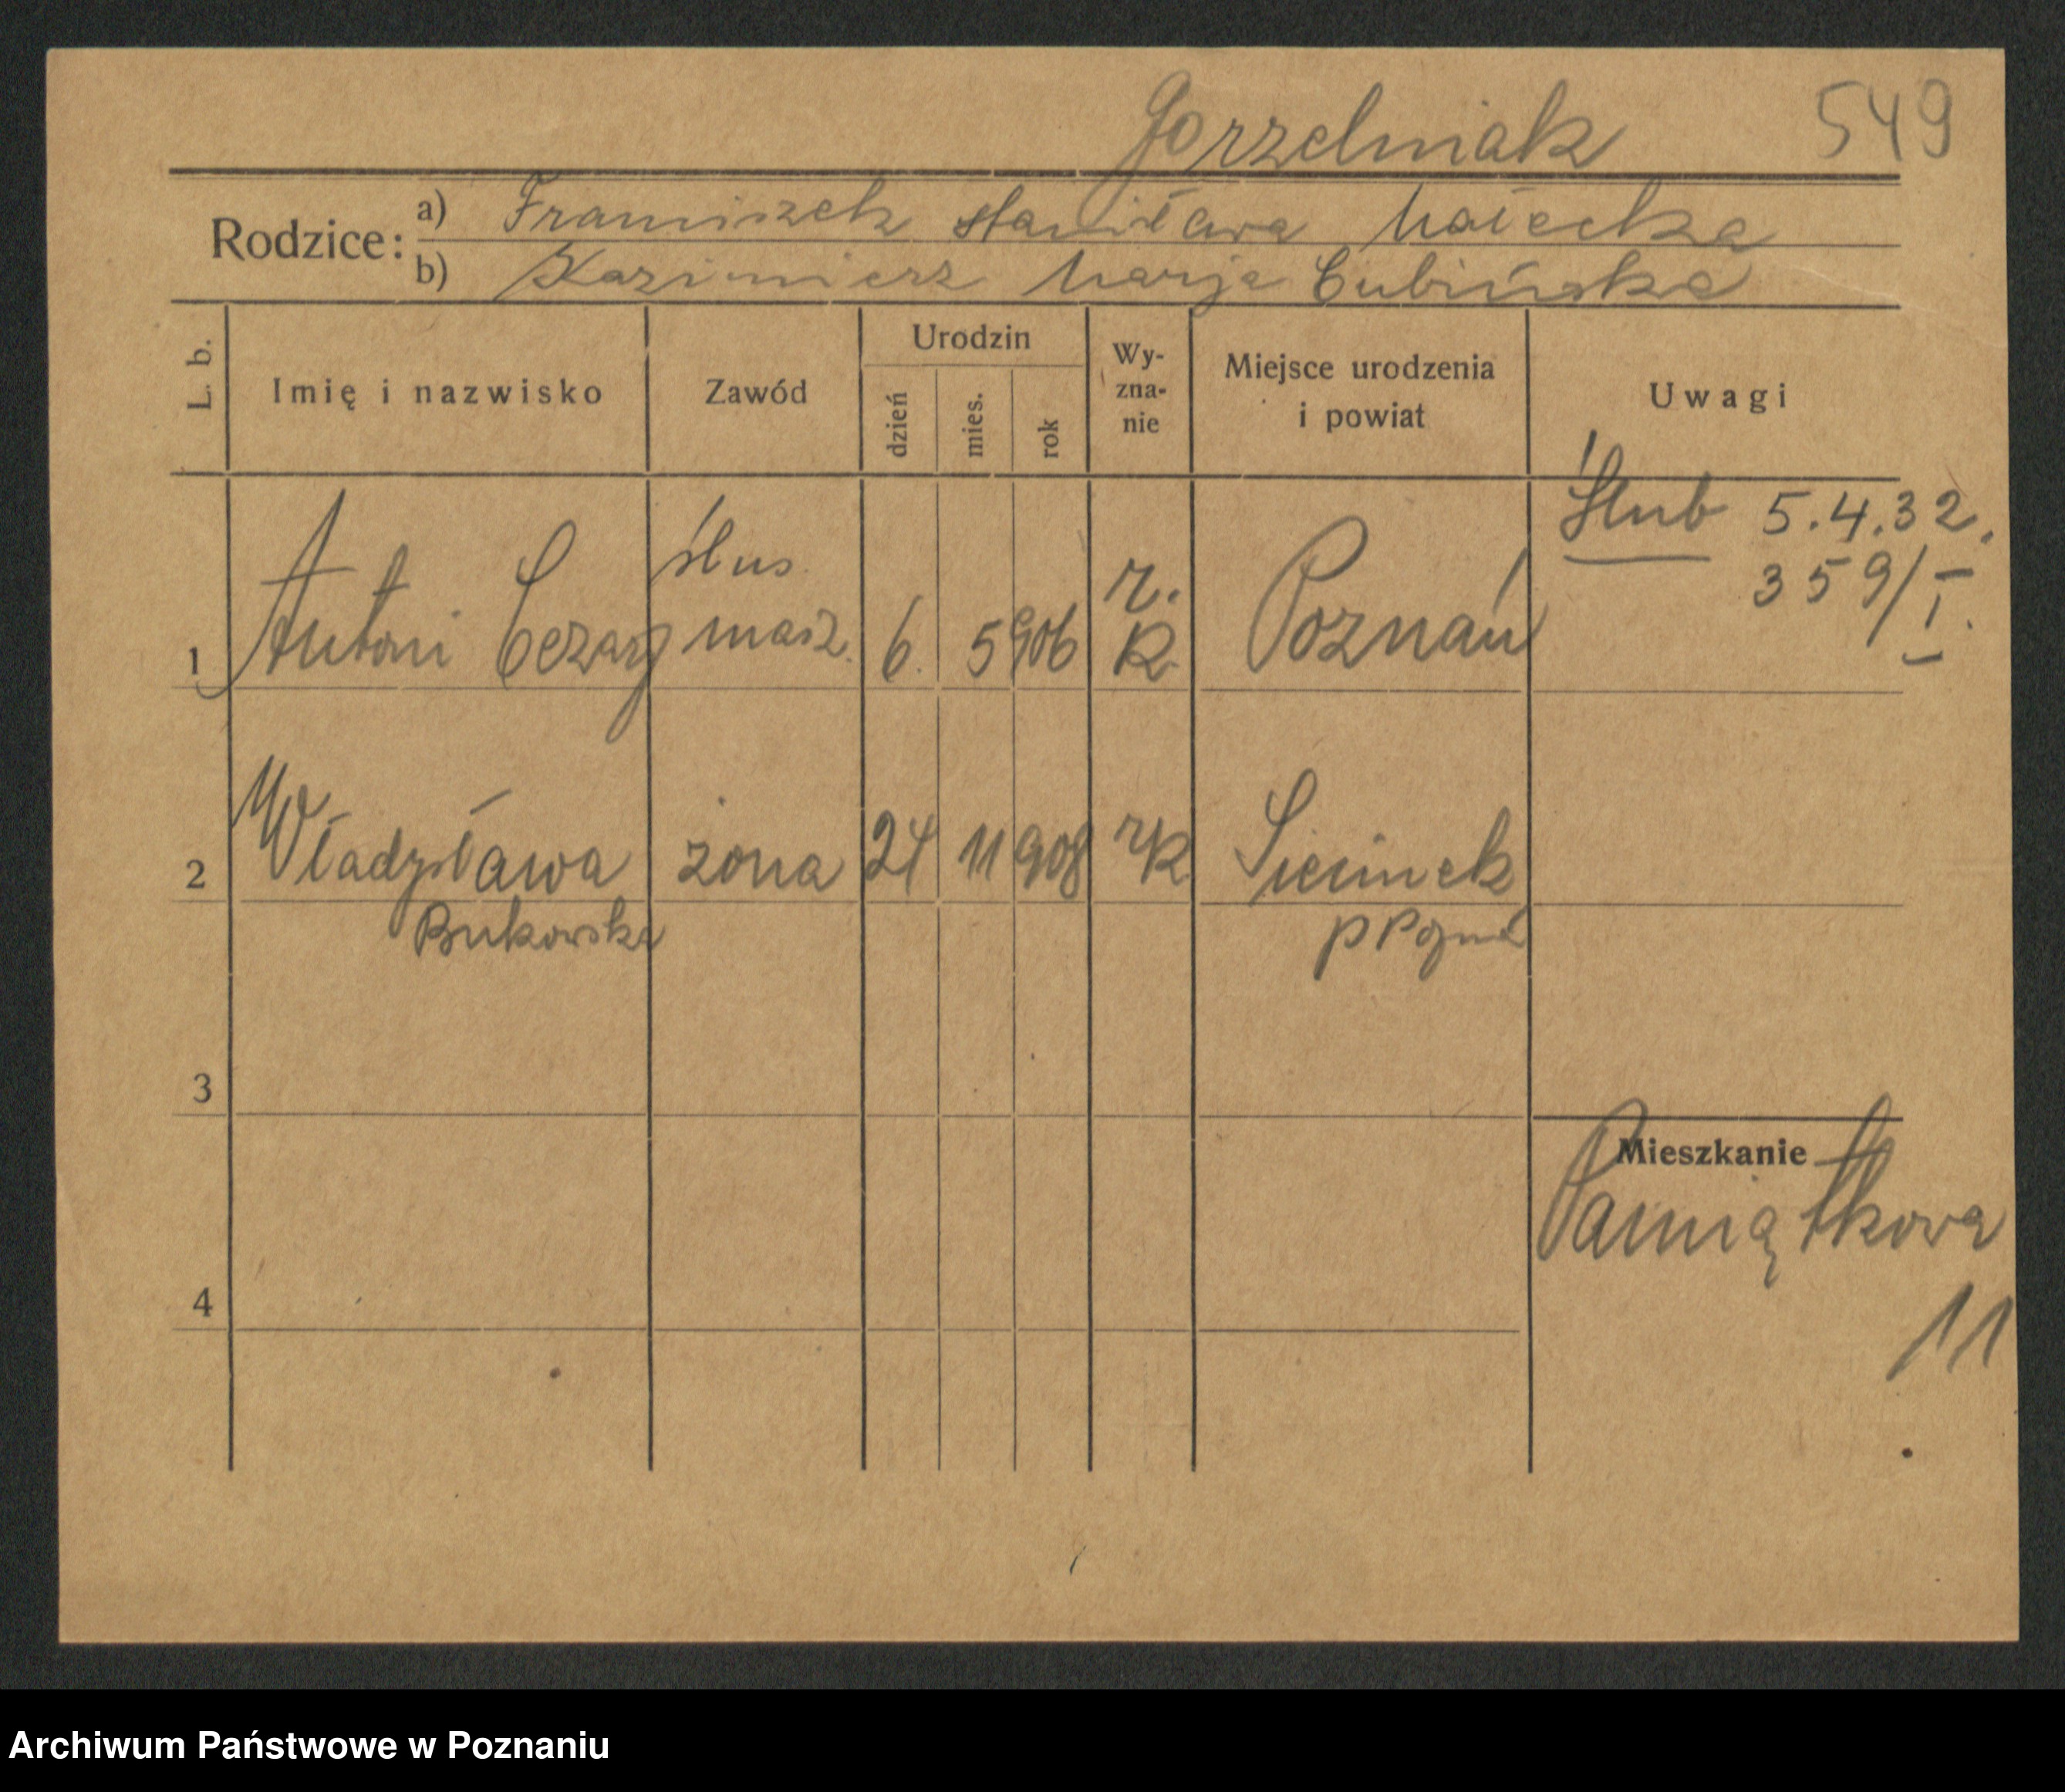 Gorzelniak 549
Rodzice: a) Franciszek Stanisława Małecka
b) Kazimierz Marja Cubińska
L. b. Imię i nazwisko Zawód Urodzin dzień mies. rok Wy-zna-nie Miejsce urodzenia i powiat Uwagi
Ślub 5.4.32.
359/I.
1 Antoni Cezary ślus. masz. 6. 5 906 r. k. Poznań
2 Władysława żona 24 11 908 rk
Bukowska
3
Mieszkanie
Pamiątkowa
11
4
Archiwum Państwowe w Poznaniu